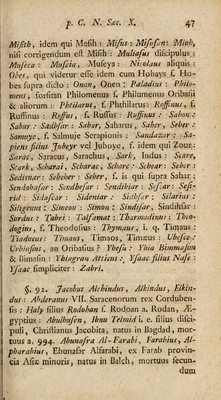 p. C. N. Sæc. X. 47
Misbth, idem qui Mesih: Misus: Misoson: Minh,
nisi corrigendum est Misih: Muliasus discipulus:
Museca: Muscia, Museya: Nicolaus aliquis:
Obes, qui videtur esse idem cum Hobays s. Ho-
bes supra dicto: Onen, Onen: Paladius: Philo-
mens, forsitan Philemon s. Philumenus Oribasii
& aliorum: Phtilarus, s. Phthilarus: Roffinus, s.
Ruffinus: Roffus, s. Ruffus: Ruffinus: Sabon:
Sabur: Sadhsar: Sabar, Saharus, Saher, Seber:
Samuye, s. Salmuje Serapionis: Sandaxar: Sa-
piens filius Jubeyr vel Juboye, s. idem qui Zour:
Sarac, Saracus, Sarachus, Sark, Indus: Scare,
Scark, Scharac, Scharac, Scharc: Schear: Scher:
Sedisnar: Scheber: Seber, s. is qui supra Sahar:
Sendahasar: Sendhesar: Sendibiar: Sesar: Sesi-
rid: Sidascar: Sideniar: Siabsar: Silarius:
Sitigenus: Simeon: Simon: Sindisar, Sindhisar:
Surdus: Tabri: Talfamat: Tharmadinus: Theo-
dogius, s. Theodosius: Thymaur, i. q. Timaus:
Tiadueus: Timaus, Timaos, Timaus: Ubasce:
Urbiasius, an Oribasius? Yhesu: Yhia Binmasun
& Bimasun: Yhiograu Atticus: Ysaac filius Nase:
Ysaac simpliciter: Zabri.
§. 92. Jacobus Alchindus, Alkindus, Elkin-
dus: Abderanus VII. Saracenorum rex Corduben-
sis: Haly filius Rodohan s. Rodoan a. Rodan, Æ-
gyptius: Abulbusen, Ibnu Telmid i. e. filius disci-
puli, Christianus Jacobita, natus in Bagdad, mor-
tuus a. 994. Abunasra Al-Farabi, Farabius, Al-
pharabius, Ebunasir Alfarabi, ex Farab provin-
cia Asiæ minoris, natus in Balch, mortuus secun-
dum